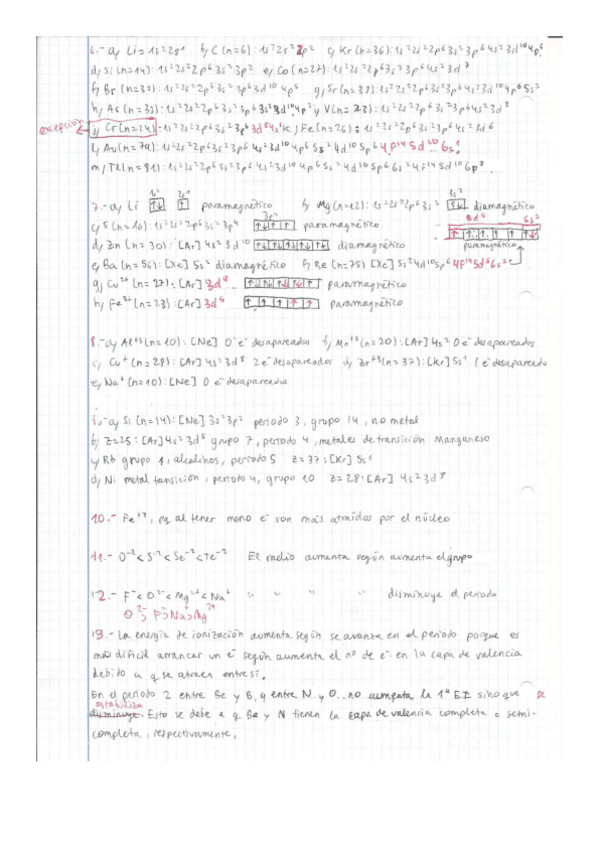 6.- a) Li = 1s²2s¹ b) C (n=6): 1s²2s²2p² c) Kr (n=36): 1s²2s²2p⁶3s²3p⁶4s²3d¹⁰4p⁶
d) Si (n=14): 1s²2s²2p⁶3s²3p² e) Co (n=27): 1s²2s²2p⁶3s²3p⁶4s²3d⁷
f) Br (n=35): 1s²2s²2p⁶3s²3p⁶3d¹⁰4p⁵ g) Sr (n=38): 1s²2s²2p⁶3s²3p⁶4s²3d¹⁰4p⁶5s²
h) As (n=33): 1s²2s²2p⁶3s²3p⁶3s²3d¹⁰4p³ i) V (n=23): 1s²2s²2p⁶3s²3p⁶4s²3d³
excepción j) Cr (n=24): 1s²2s²2p⁶3s²3p⁶3d⁵4s¹ k) Fe (n=26): 1s²2s²2p⁶3s²3p⁶4s²3d⁶
l) Au (n=79): 1s²2s²2p⁶3s²3p⁶4s²3d¹⁰4p⁶5s²4d¹⁰5p⁶4f¹⁴5d¹⁰6s¹
m) Tl (n=81): 1s²2s²2p⁶3s²3p⁶4s²3d¹⁰4p⁶5s²4d¹⁰5p⁶6s²4f¹⁴5d¹⁰6p³
1s² 2s¹ 3s²
7.- a) Li paramagnético b) Mg (n=12): 1s²2s²2p⁶3s² diamagnético
c) S (n=16): 1s²2s²2p⁶3s²3p⁴ 3p⁴ paramagnético 5d⁵ 6s²
d) Zn (n=30): [Ar] 4s²3d¹⁰ diamagnético paramagnético
e) Ba (n=56): [Xe] 5s² diamagnético f) Re (n=75) [Xe] 5s²4d¹⁰5p⁶4f¹⁴5d⁵6s²
g) Cu²⁺ (n=27): [Ar] 3d⁹ paramagnético
h) Fe³⁺ (n=23): [Ar] 3d⁵ paramagnético
8.- a) Al⁺³ (n=10): [Ne] 0 e⁻ desapareados b) Mn⁺³ (n=20): [Ar] 4s² 0 e⁻ desapareados
c) Cu⁺ (n=28): [Ar] 4s²3d⁸ 2 e⁻ desapareados d) Zr⁺³ (n=37): [Kr] 5s¹ 1 e⁻ desapareado
e) Na⁺ (n=10): [Ne] 0 e⁻ desapareados
a) Si (n=14): [Ne] 3s²3p² periodo 3, grupo 14, no metal
b) Z=25: [Ar] 4s²3d⁵ grupo 7, periodo 4, metales de transición Manganeso
c) Rb grupo 1, alcalinos, periodo 5 Z=37: [Kr] 5s¹
d) Ni metal tansición, periodo 4, grupo 10 Z=28: [Ar] 4s²3d⁸
10.- Fe⁺³, pq al tener meno e⁻ son más atraídos por el núcleo
11.- O⁻²<S⁻²<Se⁻²<Te⁻² El radio aumenta según aumenta el grupo
12.- F⁻<O²⁻<Mg²⁺<Na⁺ " " " " disminuye el periodo
O²⁻> F⁻>Na⁺>Mg²⁺
13.- La energía de ionización aumenta según se avanza en el periodo porque es
más difícil arrancar un e⁻ según aumenta el nº de e⁻ en la capa de valencia
debido a q se atraen entre sí.
En el periodo 2 entre Be y B, y entre N y O.. no aumenta la 1ª EI sino que se
estabiliza
disminuye. Esto se debe a q Be y N tienen la capa de valencia completa o semi-
completa, respectivamente,